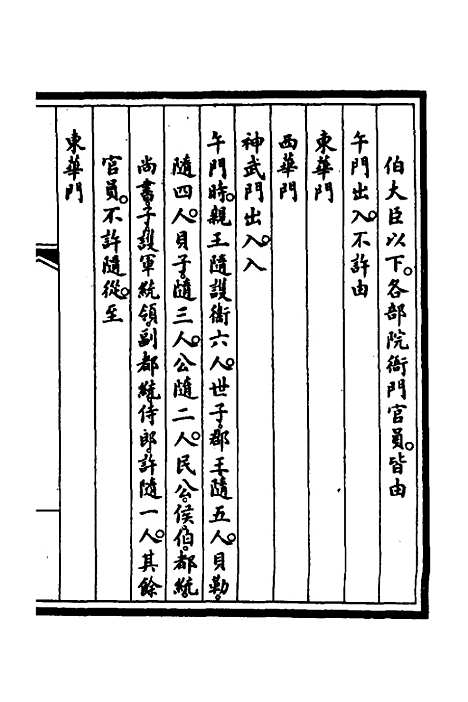 伯大臣以下。各部院衙門官員。皆由
午門出入。不許由
東華門
西華門
神武門出入。入
午門時。親王隨護衛六人。世子。郡王隨五人。貝勒。
隨四人。貝子。隨三人。公隨二人。民公。侯。伯。都統。
尚書。子。護軍統領。副都統。侍郎。許隨一人。其餘
官員。不許隨從。至
東華門